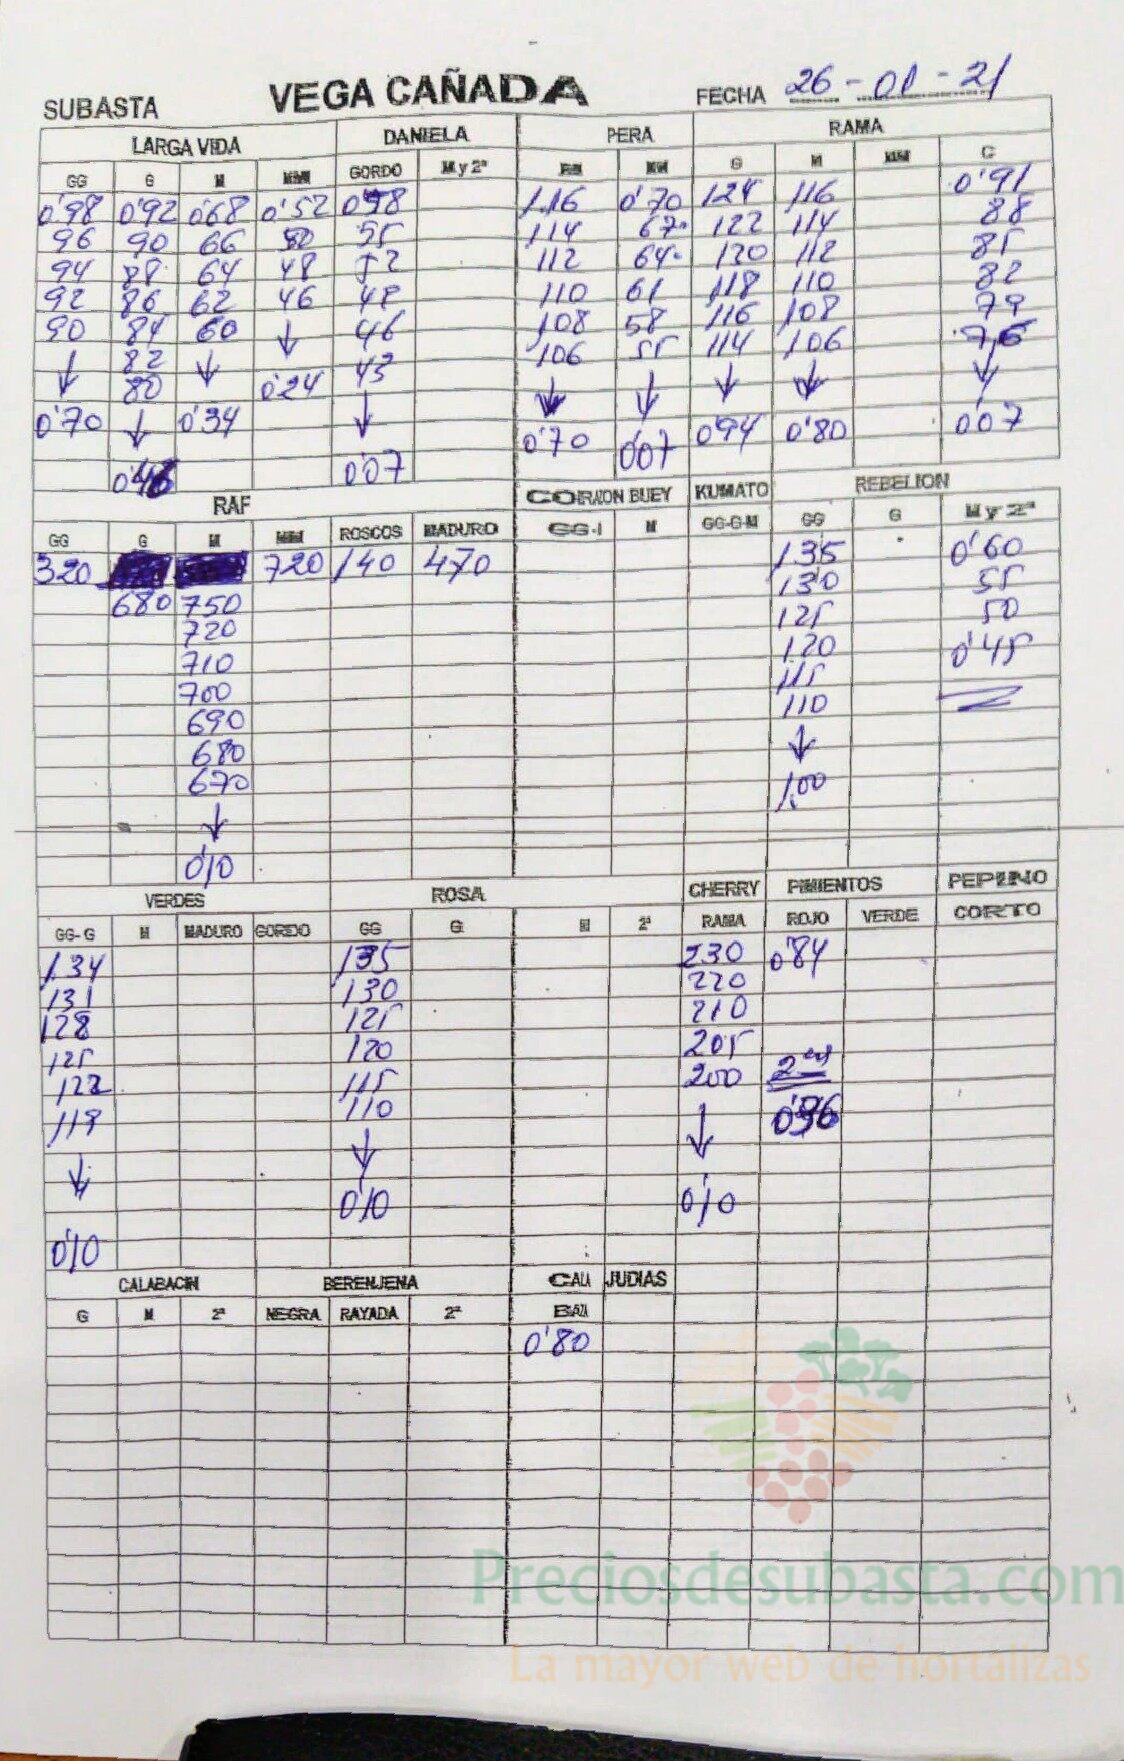 SUBASTA VEGA CAÑADA FECHA 26-01-21
LARGA VIDA DANIELA PERA RAMA
GG G M MM GORDO M y 2ª MM G M MM C
0'98 0'92 0'68 0'52 116 0'70 124 116 0'91
96 90 66 50 55 114 67 122 114 88
94 88 64 48 52 112 64 120 112 85
92 86 62 46 48 110 61 118 110 82
90 84 60 46 108 58 116 108 79
↓ 82 ↓ ↓ 43 106 55 114 106 76
80 0'24 ↓ ↓ ↓ ↓ ↓ ↓
0'70 ↓ 0'34 0'70 0'07 0'94 0'80 0'07
0'07
RAF CORAZON BUEY KUMATO REBELION
GG G M MM ROSCOS MADURO GG-I M GG-G-M GG G M y 2ª
320 720 140 470 135 0'60
680 750 130 55
720 125 50
710 120 0'45
700 115
690 110
680 ↓
670 1,00
↓
0'10
VERDES ROSA CHERRY PIMIENTOS PEPINO
GG-G M MADURO GORDO GG G M 2ª RAMA ROJO VERDE CORTO
134 135 230 0'84
131 130 220
128 125 210
125 120 205
122 115 200
119 110 ↓
↓ ↓
0'10 0'10
0'10
CALABACIN BERENJENA CALA JUDIAS
G M 2ª NEGRA RAYADA 2ª BAZA
0'80
Preciosdesubasta.com
La mayor web de hortalizas